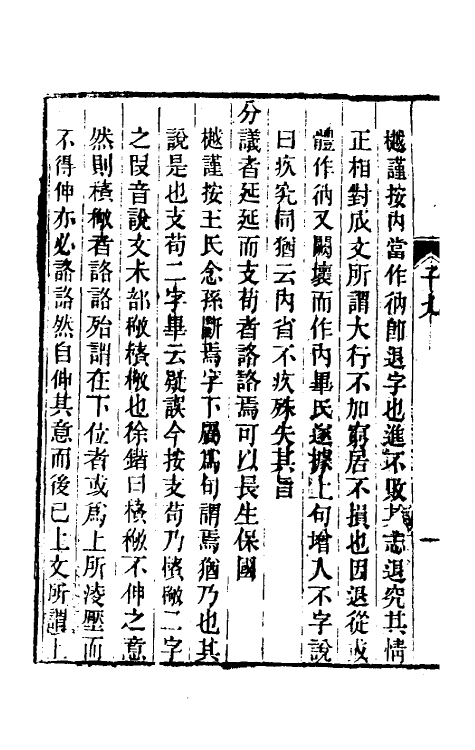 樾謹按內當作𢓇卽退字也進不敗其志退究其情
正相對成文所謂大行不加窮居不損也因退從或
體作𢓇又闕壞而作內畢氏遂據上句增入不字說
曰疚究同猶云內省不疚殊失其旨
分議者延延而支苟者詻詻焉可以長生保國
樾謹按王氏念孫斷焉字下屬爲句謂焉猶乃也其
說是也支苟二字畢云疑誤今按支苟乃𥠻𥡳二字
之叚音說文禾部𥡳𥠻𥡳也徐鍇曰𥠻𥡳不伸之意
然則𥠻𥡳者詻詻殆謂在下位者或爲上所淩壓而
不得伸亦必詻詻然自伸其意而後已上文所謂上
子九
一